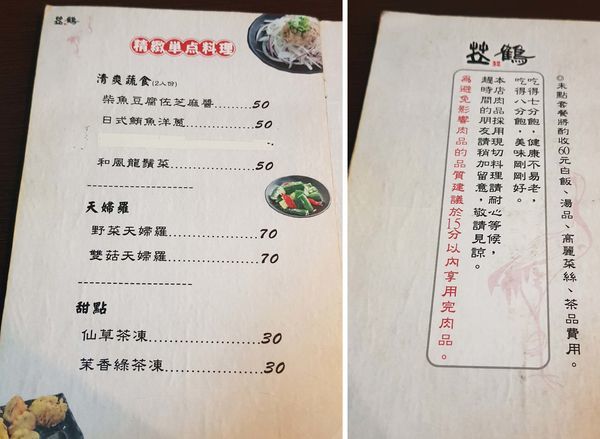 精緻単点料理
清爽蔬食(2人份)
柴魚豆腐佐芝麻醬.........50
日式鮪魚洋蔥............50
和風龍鬚菜..............50
天婦羅
野菜天婦羅..............70
雙菇天婦羅..............70
甜點
仙草茶凍................30
茉香綠茶凍..............30
鶴
◎未點套餐將酌收60元白飯、湯品、高麗菜絲、茶品費用。
吃得七分飽，健康不易老，
吃得八分飽，美味剛剛好。
本店肉品採用現切料理請耐心等候，
趕時間的朋友請稍加留意，敬請見諒。
為避免影響肉品的品質建議於15分以內享用完肉品。